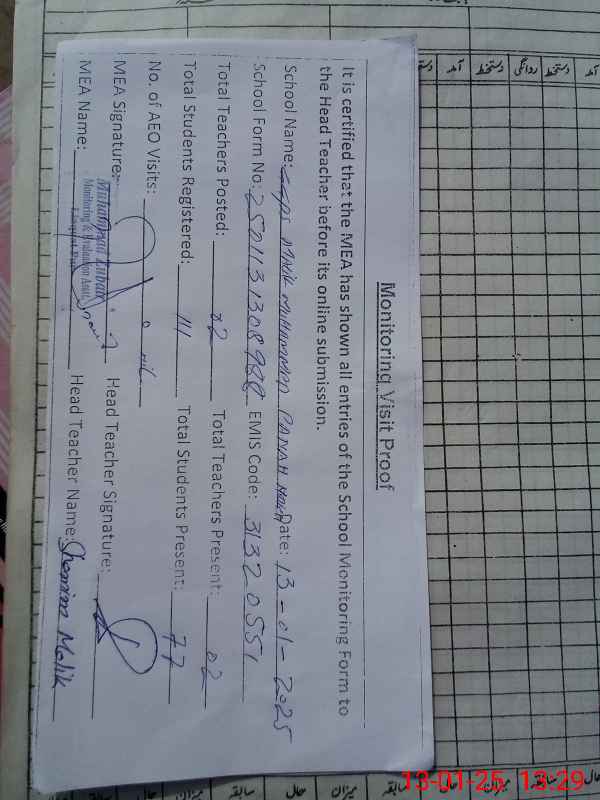 Monitoring Visit Proof
It is certified that the MEA has shown all entries of the School Monitoring Form to
the Head Teacher before its online submission.
School Name: Malik Muhammad Panah Date: 13-01-2025
School Form No: EMIS Code: 31320551
Total Teachers Posted: 02 Total Teachers Present: 02
Total Students Registered: 111 Total Students Present: 77
No. of AEO Visits: 0 nil
MEA Signature: Head Teacher Signature:
Muhammad
Monitoring & Evaluation Asstt.
MEA Name: Head Teacher Name: Shamim Malik
آمد دستخط روانگی دستخط آمد
میزان حال سابقہ میزان حال سابقہ میزان حال سابقہ
13-01-25 13:29